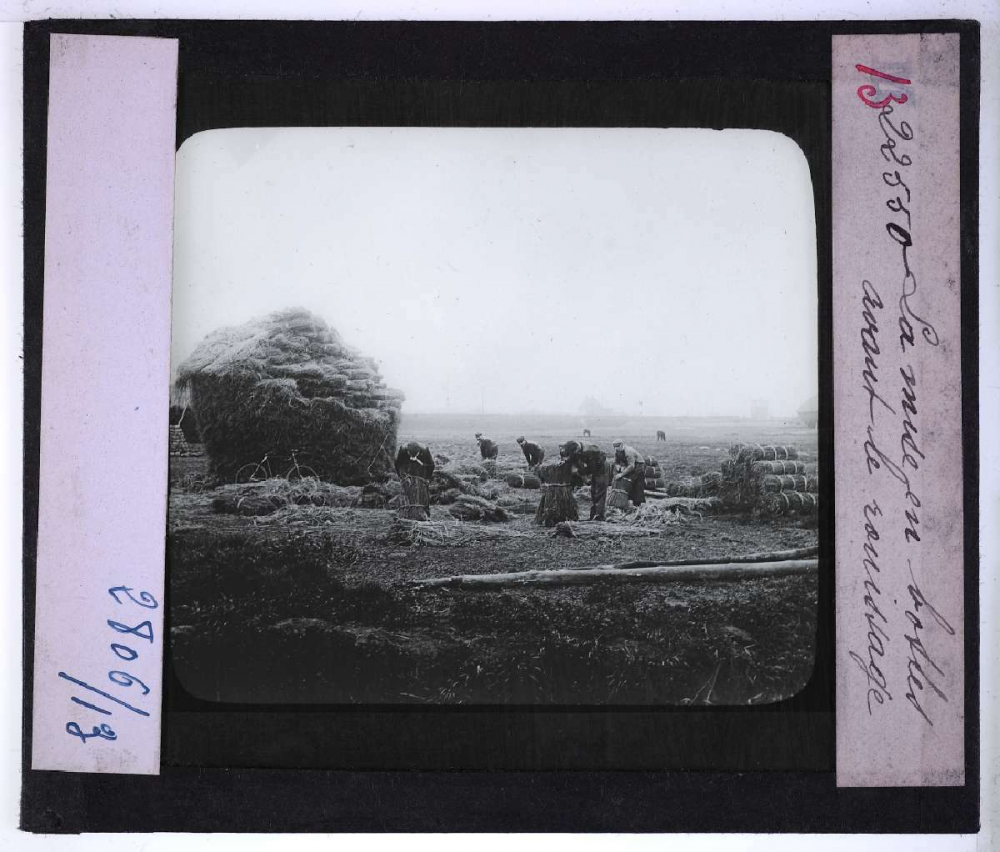 2806/13
13
22550 La mise en bottes
avant le rouissage